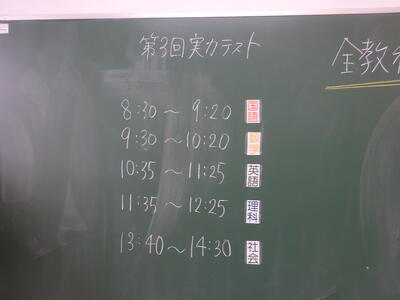 第3回実力テスト
全教
8:30～9:20 国語
9:30～10:20 数学
10:35～11:25 英語
11:35～12:25 理科
13:40～14:30 社会